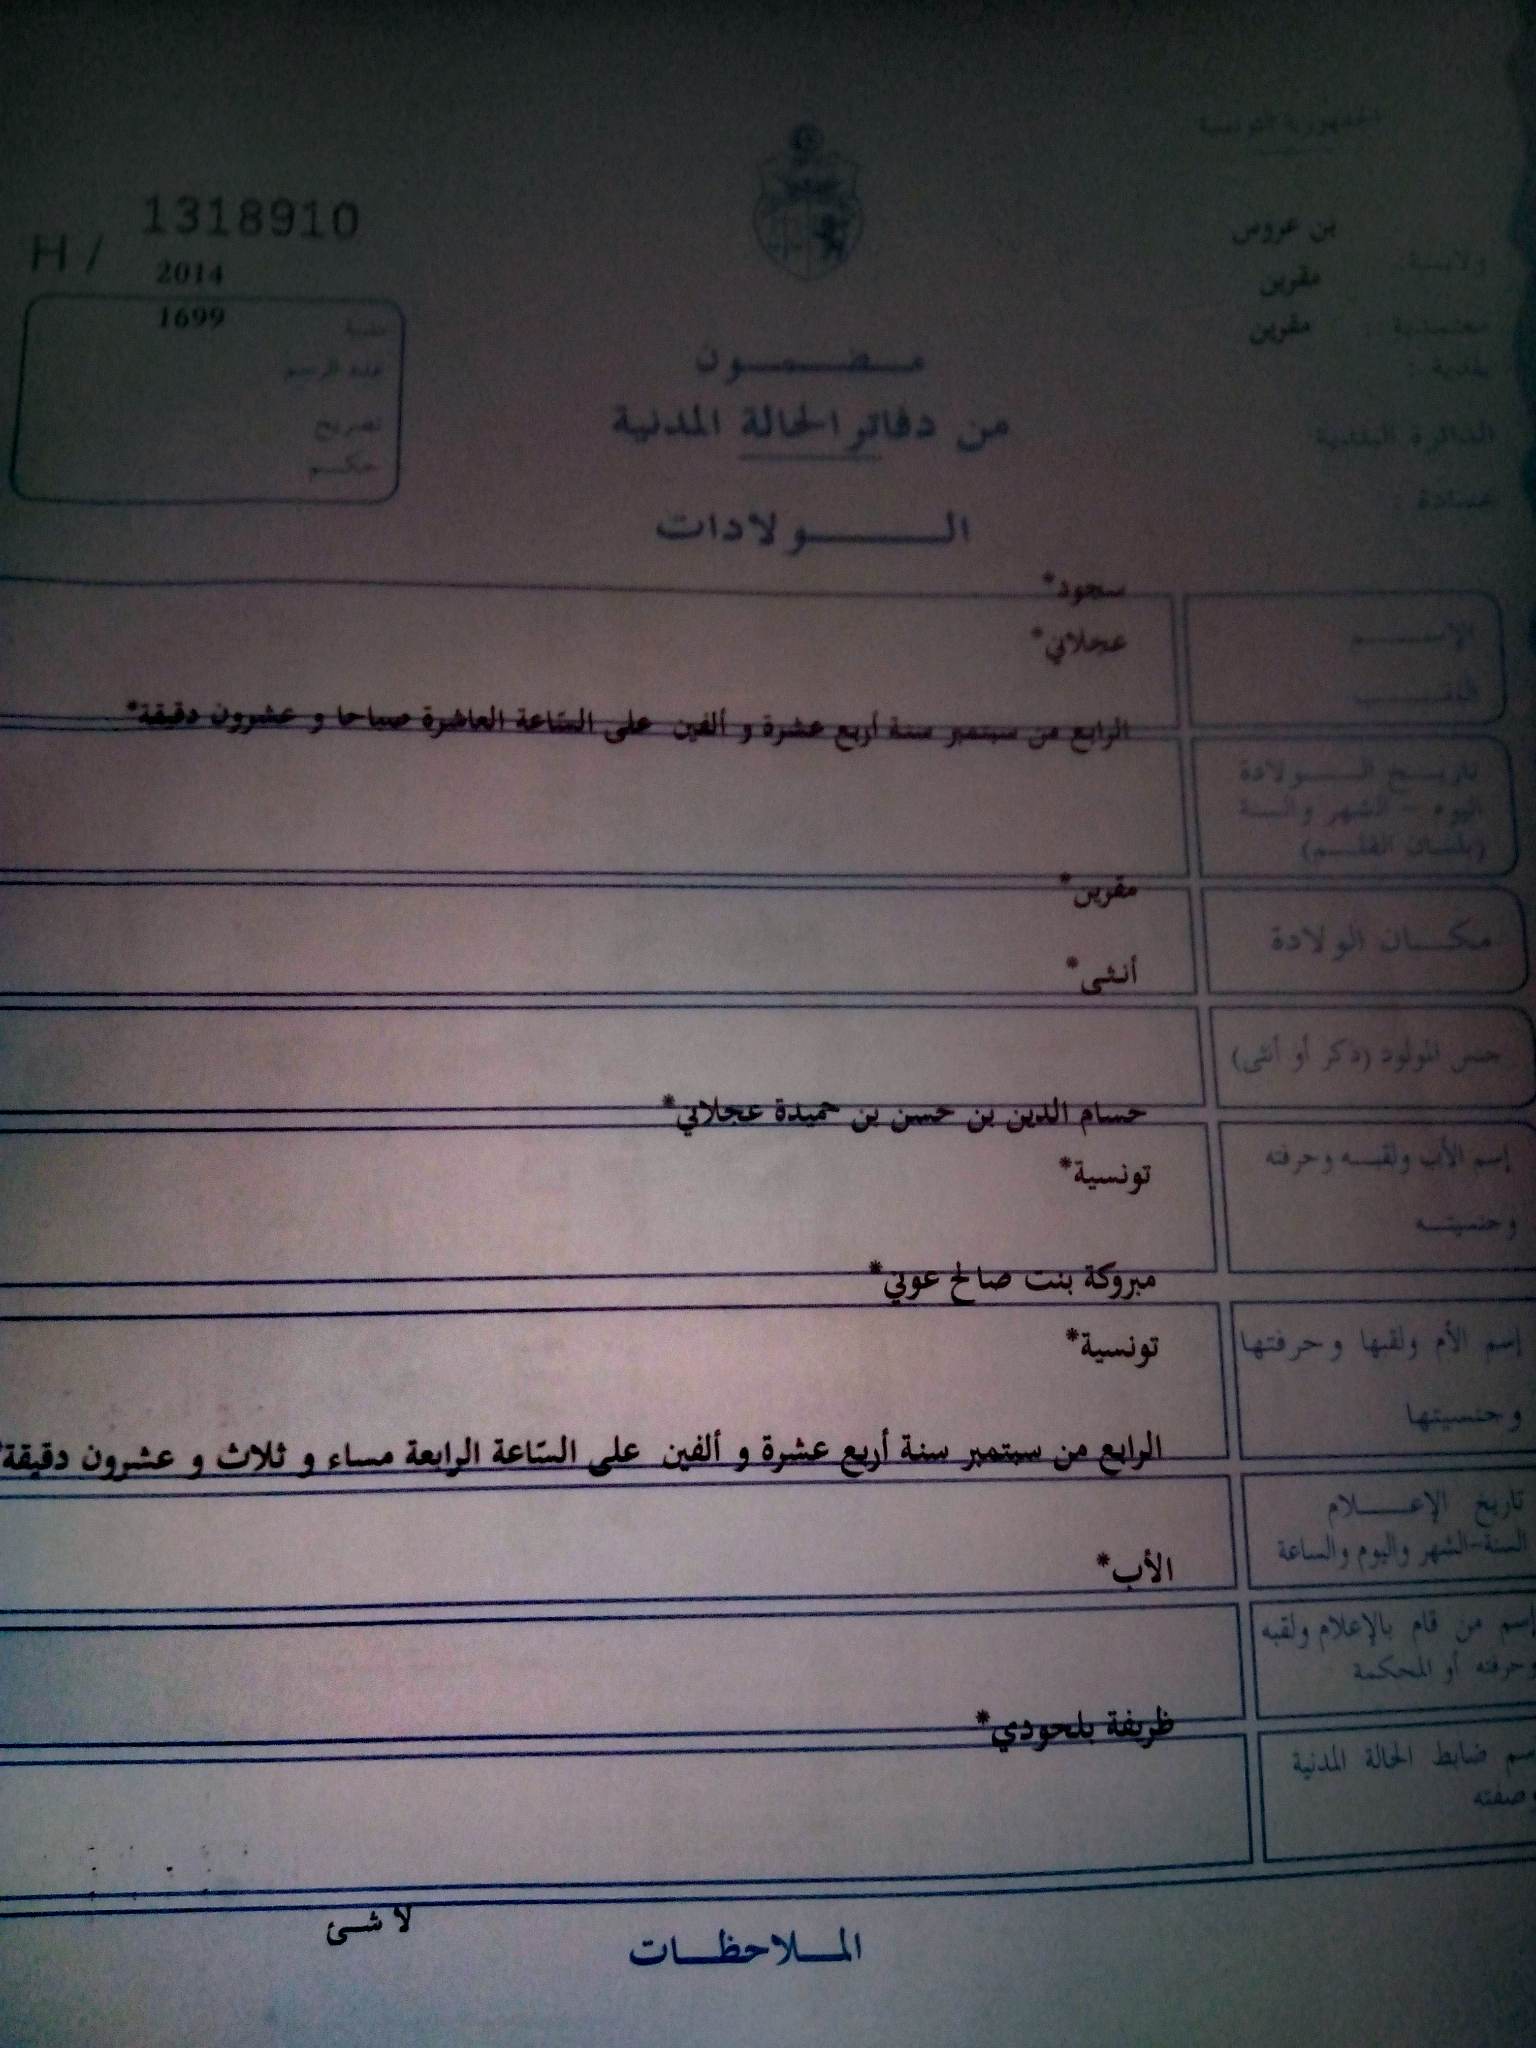 الجمهورية التونسية
ولايـة : بن عروس
معتمدية : مقرين
بلدية : مقرين
الدائرة البلدية
عمادة :
H / 1318910
سنة 2014
عدد الرسم 1699
تصريح
حكم
مضمون
من دفاتر الحالة المدنية
الولادات
الإسم سجود*
اللقب عجلاني*
تاريخ الولادة الرابع من سبتمبر سنة أربع عشرة و ألفين على السّاعة العاشرة صباحا و عشرون دقيقة*
اليوم - الشهر والسنة
(بلسان القلم)
مكان الولادة مقرين*
جنس المولود (ذكر أو أنثى) أنثى*
إسم الأب ولقبه وحرفته حسام الدين بن حسن بن حميدة عجلاني*
وجنسيته تونسية*
إسم الأم ولقبها وحرفتها مبروكة بنت صالح عوني*
وجنسيتها تونسية*
تاريخ الإعلام الرابع من سبتمبر سنة أربع عشرة و ألفين على السّاعة الرابعة مساء و ثلاث و عشرون دقيقة*
السنة-الشهر واليوم والساعة
إسم من قام بالإعلام ولقبه الأب*
وحرفته أو المحكمة
إسم ضابط الحالة المدنية ظريفة بلحودي*
وصفته
الملاحظات لا شئ